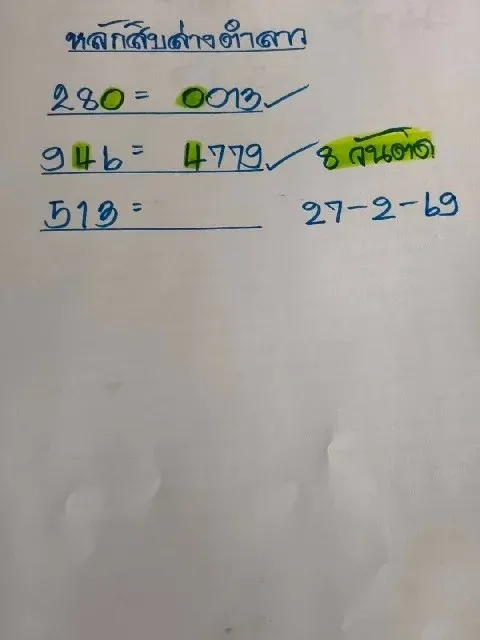 หลักสิบล่างตำลาว
280 = 0013 ✓
946 = 4779 ✓ 8 วันติด
513 = 27-2-69